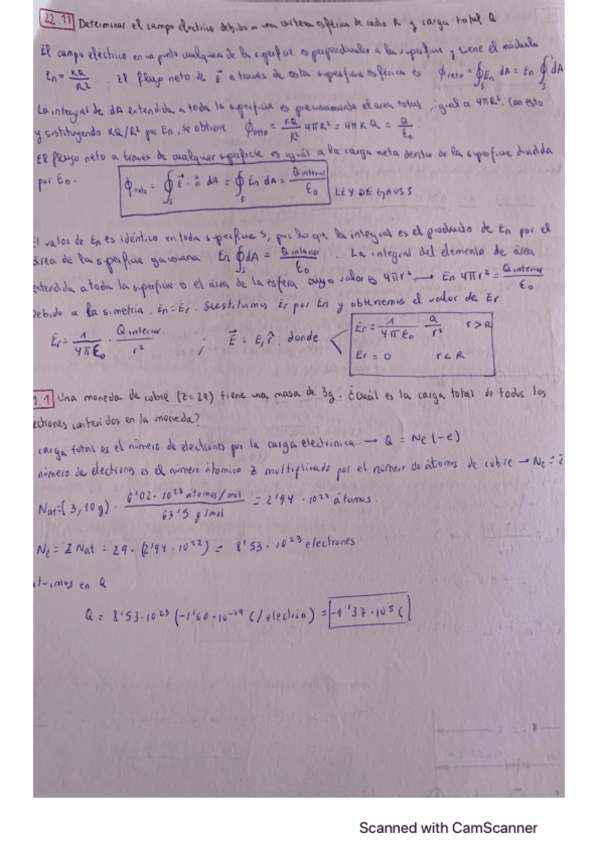 22.11 Determinar el campo eléctrico debido a una corteza esférica de radio R y carga total Q
El campo eléctrico en un punto cualquiera de la superficie es perpendicular a la superficie y tiene el módulo
En = KQ/R². El flujo neto de E⃗ a través de esta superficie esférica es φneto = ∮s En dA = En ∮s dA
La integral de dA extendida a toda la superficie es precisamente el área total, igual a 4πR². Con esto
y sustituyendo KQ/R² por En, se obtiene φneto = KQ/R² 4πR² = 4πKQ = Q/ε₀
El flujo neto a través de cualquier superficie es igual a la carga neta dentro de la superficie dividida
por ε₀. φneto = ∮s E⃗ · n̂ dA = ∮s En dA = Qinterior/ε₀ LEY DE GAUSS
El valor de En es idéntico en toda superficie S, por lo que la integral es el producto de En por el
área de la superficie gaussiana En ∮s dA = Qinterior/ε₀. La integral del elemento de área
extendida a toda la superficie es el área de la esfera cuyo valor es 4πr² → En 4πr² = Qinterior/ε₀
Debido a la simetría, En = Er. Sustituimos Er por En y obtenemos el valor de Er
Er = 1/4πε₀ · Qinterior/r² ; E⃗ = Er r̂, donde Er = 1/4πε₀ Q/r² r > R
Er = 0 r < R
1.1 Una moneda de cobre (Z=29) tiene una masa de 3g. ¿Cuál es la carga total de todos los
electrones contenidos en la moneda?
carga total es el número de electrones por la carga electrónica → Q = Ne (-e)
número de electrones es el número átomico Z multiplicado por el número de átomos de cobre → Ne = Z
Nat = (3,10g) · 6'02·10²³ átomos/mol / 63'5 g/mol = 2'94 · 10²² átomos.
Ne = Z Nat = 29 · (2'94 · 10²²) = 8'53 · 10²³ electrones
tuimos en Q
Q = 8'53·10²³ (-1'60·10⁻¹⁹ C/electrón) = -1'37·10⁵ C
Scanned with CamScanner